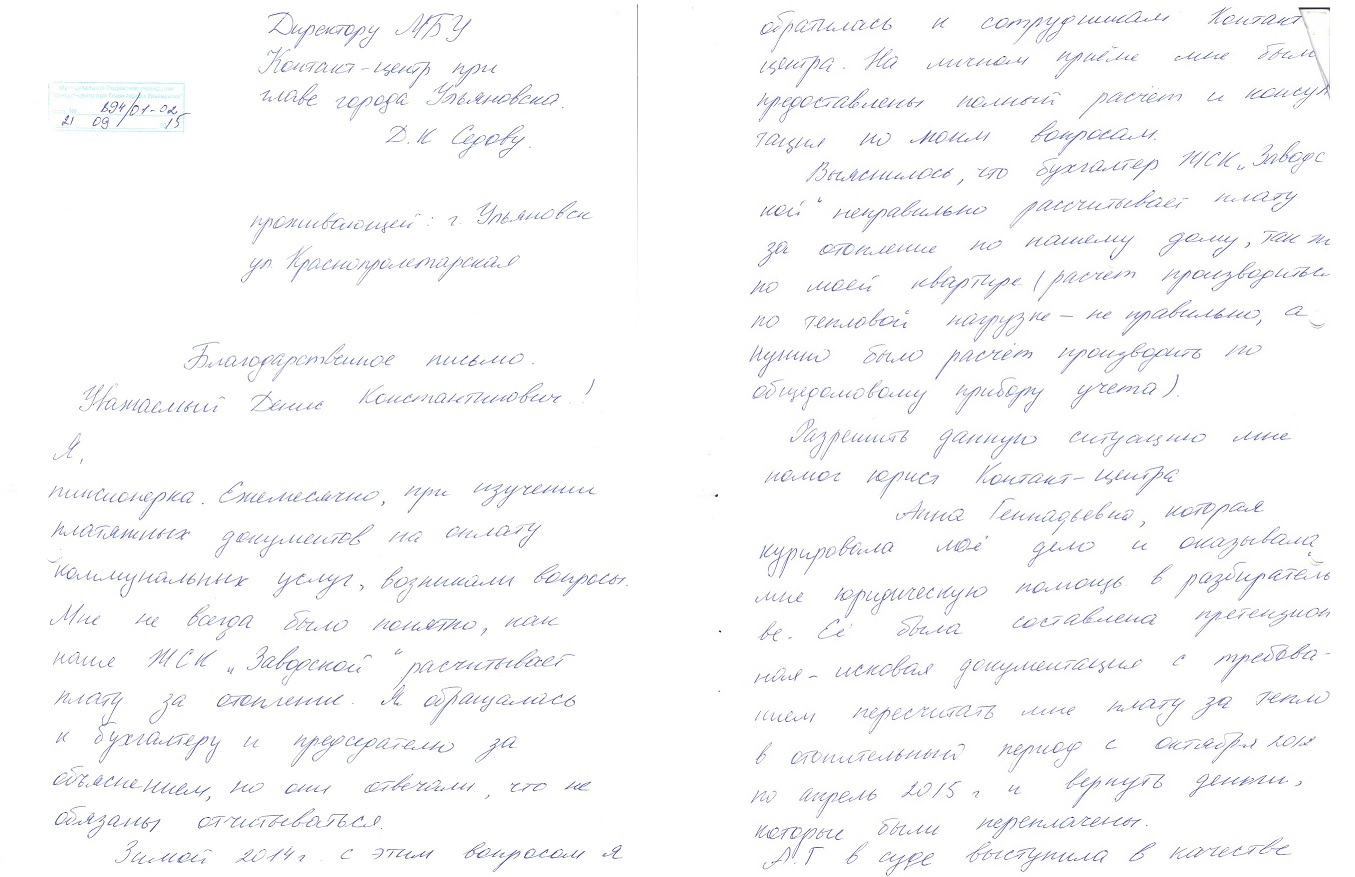 Директору МБУ
Контакт-центр при
главе города Ульяновска.
Д.К Седову.
894/01-02
21 09 15
проживающей: г. Ульяновск
ул. Краснопролетарская
Благодарственное письмо.
Уважаемый Денис Константинович!
Я,
пенсионерка. Ежемесячно, при изучении
платяжных документов на оплату
коммунальных услуг, возникали вопросы.
Мне не всегда было понятно, как
наше ЖСК „Заводской“ расчитывает
плату за отопление. Я обращалась
к бухгалтеру и председателю за
объяснением, но они отвечали, что не
обязаны отчитываться.
Зимой 2014г. с этим вопросом я
обратилась к сотрудникам Контакт
центра. На личном приёме мне были
предоставлены полный расчёт и консул
тация по моим вопросам.
Выяснилось, что бухгалтер ЖСК „Заводс
кой“ неправильно рассчитывает плату
за отопление по нашему дому, так ж
по моей квартире (расчет производиться
по тепловой нагрузке – не правильно, а
нужно было расчёт производить по
общедомовому прибору учета).
Разрешить данную ситуацию мне
помог юрист Контакт-центра
Анна Геннадьевна, которая
курировала моё дело и оказывала
мне юридическую помощь в разбиратель
ве. Её была составлена претензион
ная-исковая документация с требова-
нием пересчитать мне плату за тепло
в отопительный период с октября 2012
по апрель 2015 г и вернуть деньги,
которые были переплачены.
А.Г в суде выступила в качестве